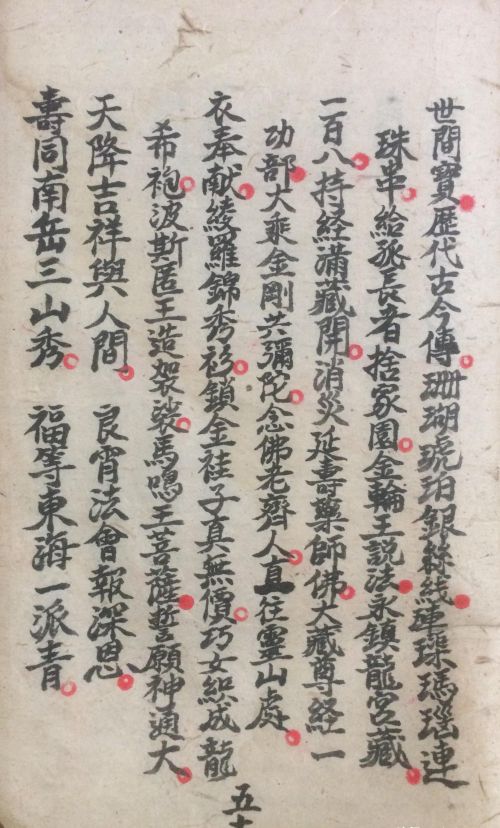 世間寶歷代古今傳珊瑚琥珀銀絲綫連琛瑪瑙連
珠串給孤長者捨家園金輪王説法永鎮龍宮藏
一百八持經滿藏開消災延壽藥師佛大藏尊經一
功部大乘金剛共彌陀念佛老齊人直往靈山處
衣奉献綾羅錦秀衫鎖金袿子真無價巧女織成龍
希袍波斯匿王造袈裟馬鳴王菩薩誓願神通大
天降吉祥與人間 良宵法會報深恩
壽同南岳三山秀 福等東海一派青
五